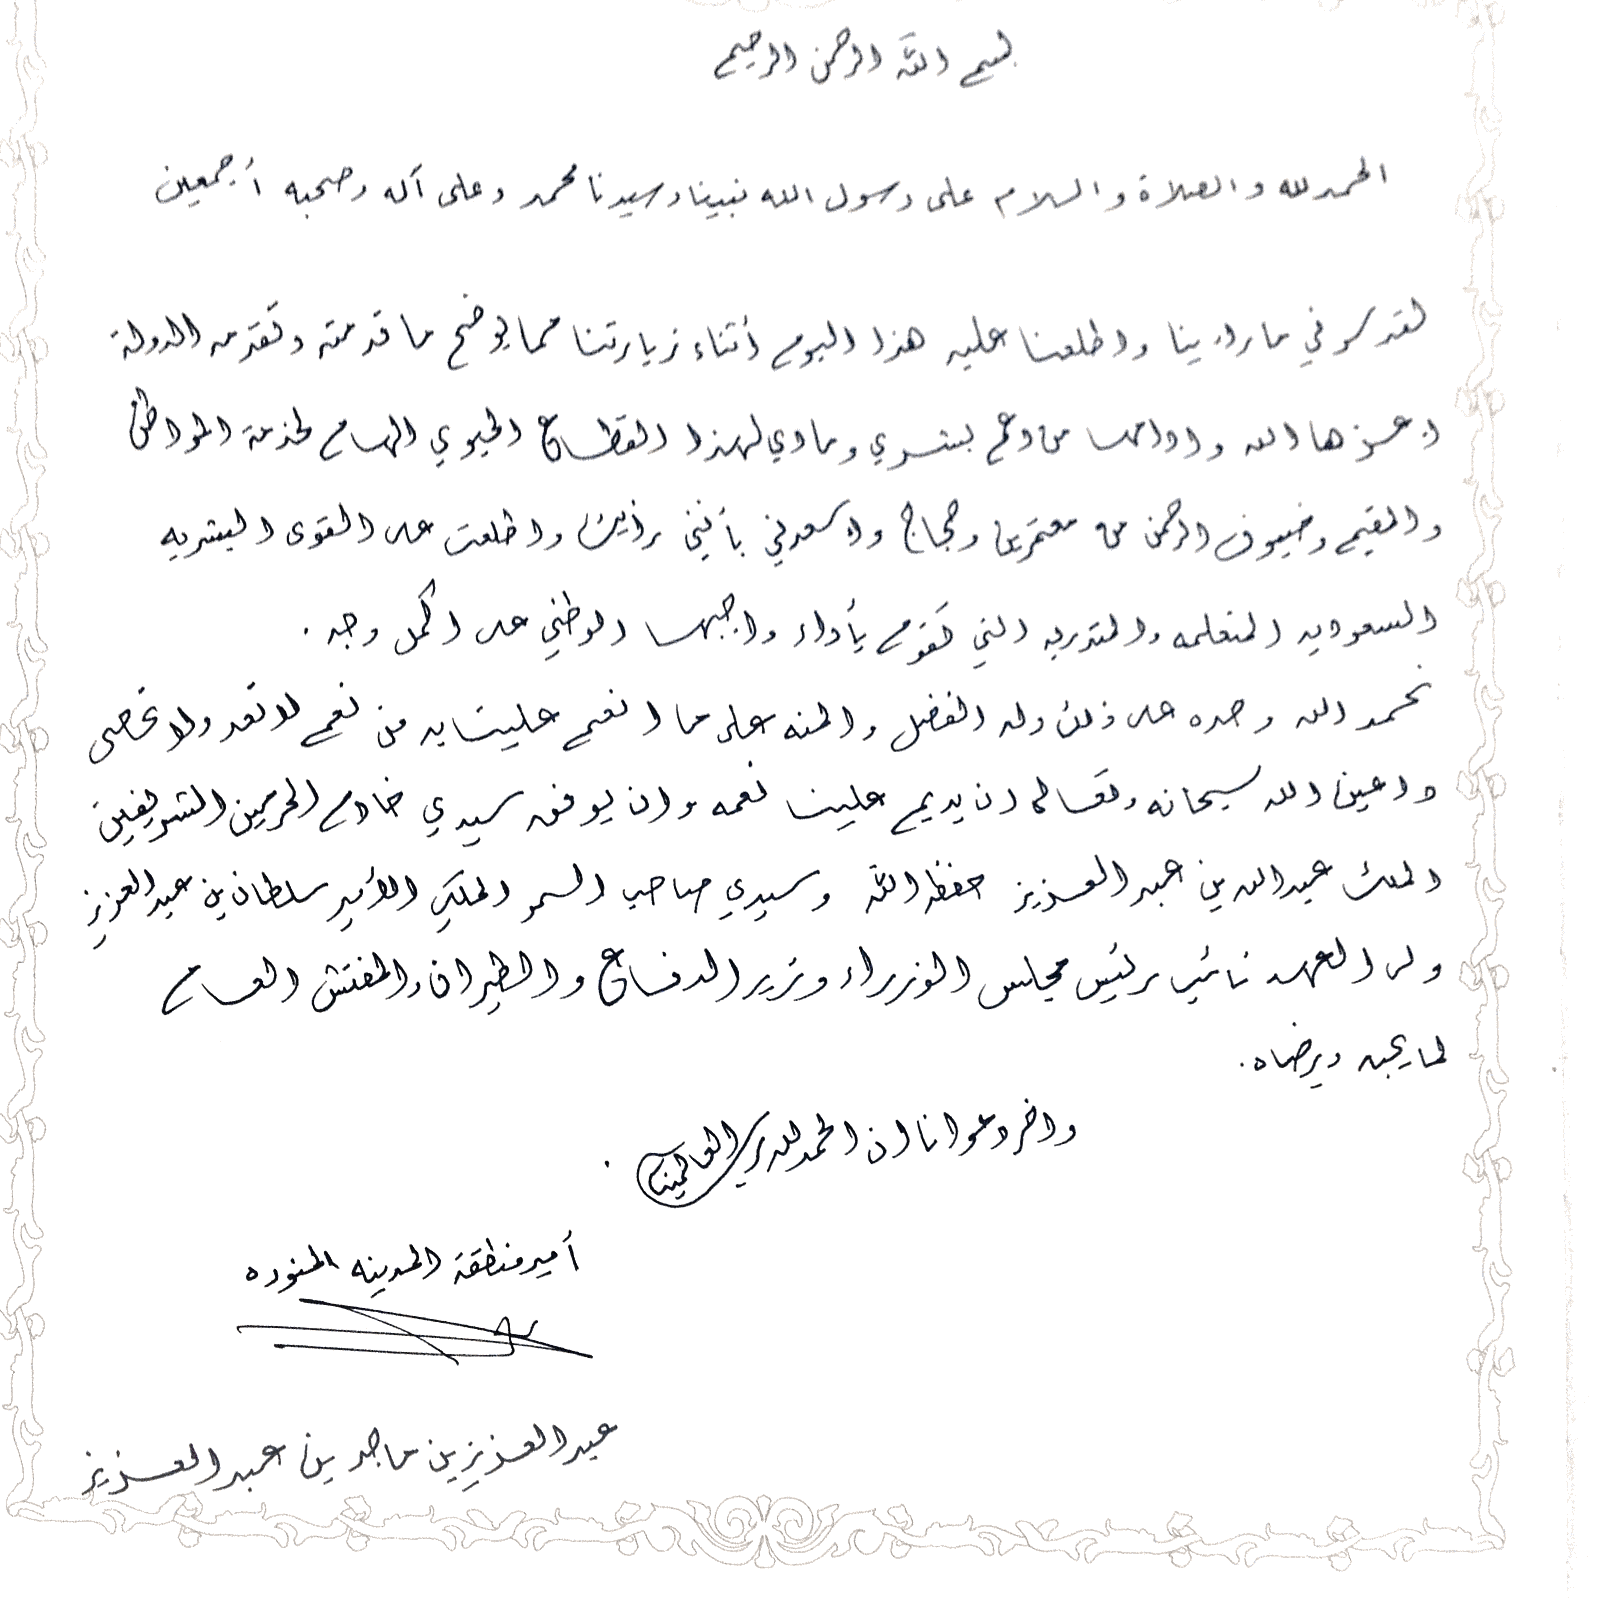 بسم الله الرحمن الرحيم
الحمد لله والصلاة والسلام على رسول الله نبينا وسيدنا محمد وعلى آله وصحبه أجمعين
لقد سرني ما رأينا واطلعنا عليه هذا اليوم أثناء زيارتنا مما يوضح ما قدمته وتقدمه الدولة
اعزها الله وادامها من دعم بشري ومادي لهذا القطاع الحيوي الهام لخدمة المواطن
والمقيم وضيوف الرحمن من معتمرين وحجاج واسعدني بأنني رأيت واطلعت على القوى البشريه
السعوديه المتعلمه والمتدربه التي تقوم بأداء واجبها الوطني على اكمل وجه .
نحمد الله وحده على ذلك وله الفضل والمنه على ما انعم علينا به من نعم لا تعد ولا تحصى
داعين الله سبحانه وتعالى ان يديم علينا نعمه وان يوفق سيدي خادم الحرمين الشريفين
الملك عبدالله بن عبد العزيز حفظه الله وسيدي صاحب السمو الملكي الأمير سلطان بن عبدالعزيز
ولي العهد نائب رئيس مجلس الوزراء وزير الدفاع والطيران والمفتش العام
لما يحبه ويرضاه .
واخر دعوانا ان الحمد لله رب العالمين .
أمير منطقة المدينه المنوره
عبدالعزيز بن ماجد بن عبد العزيز